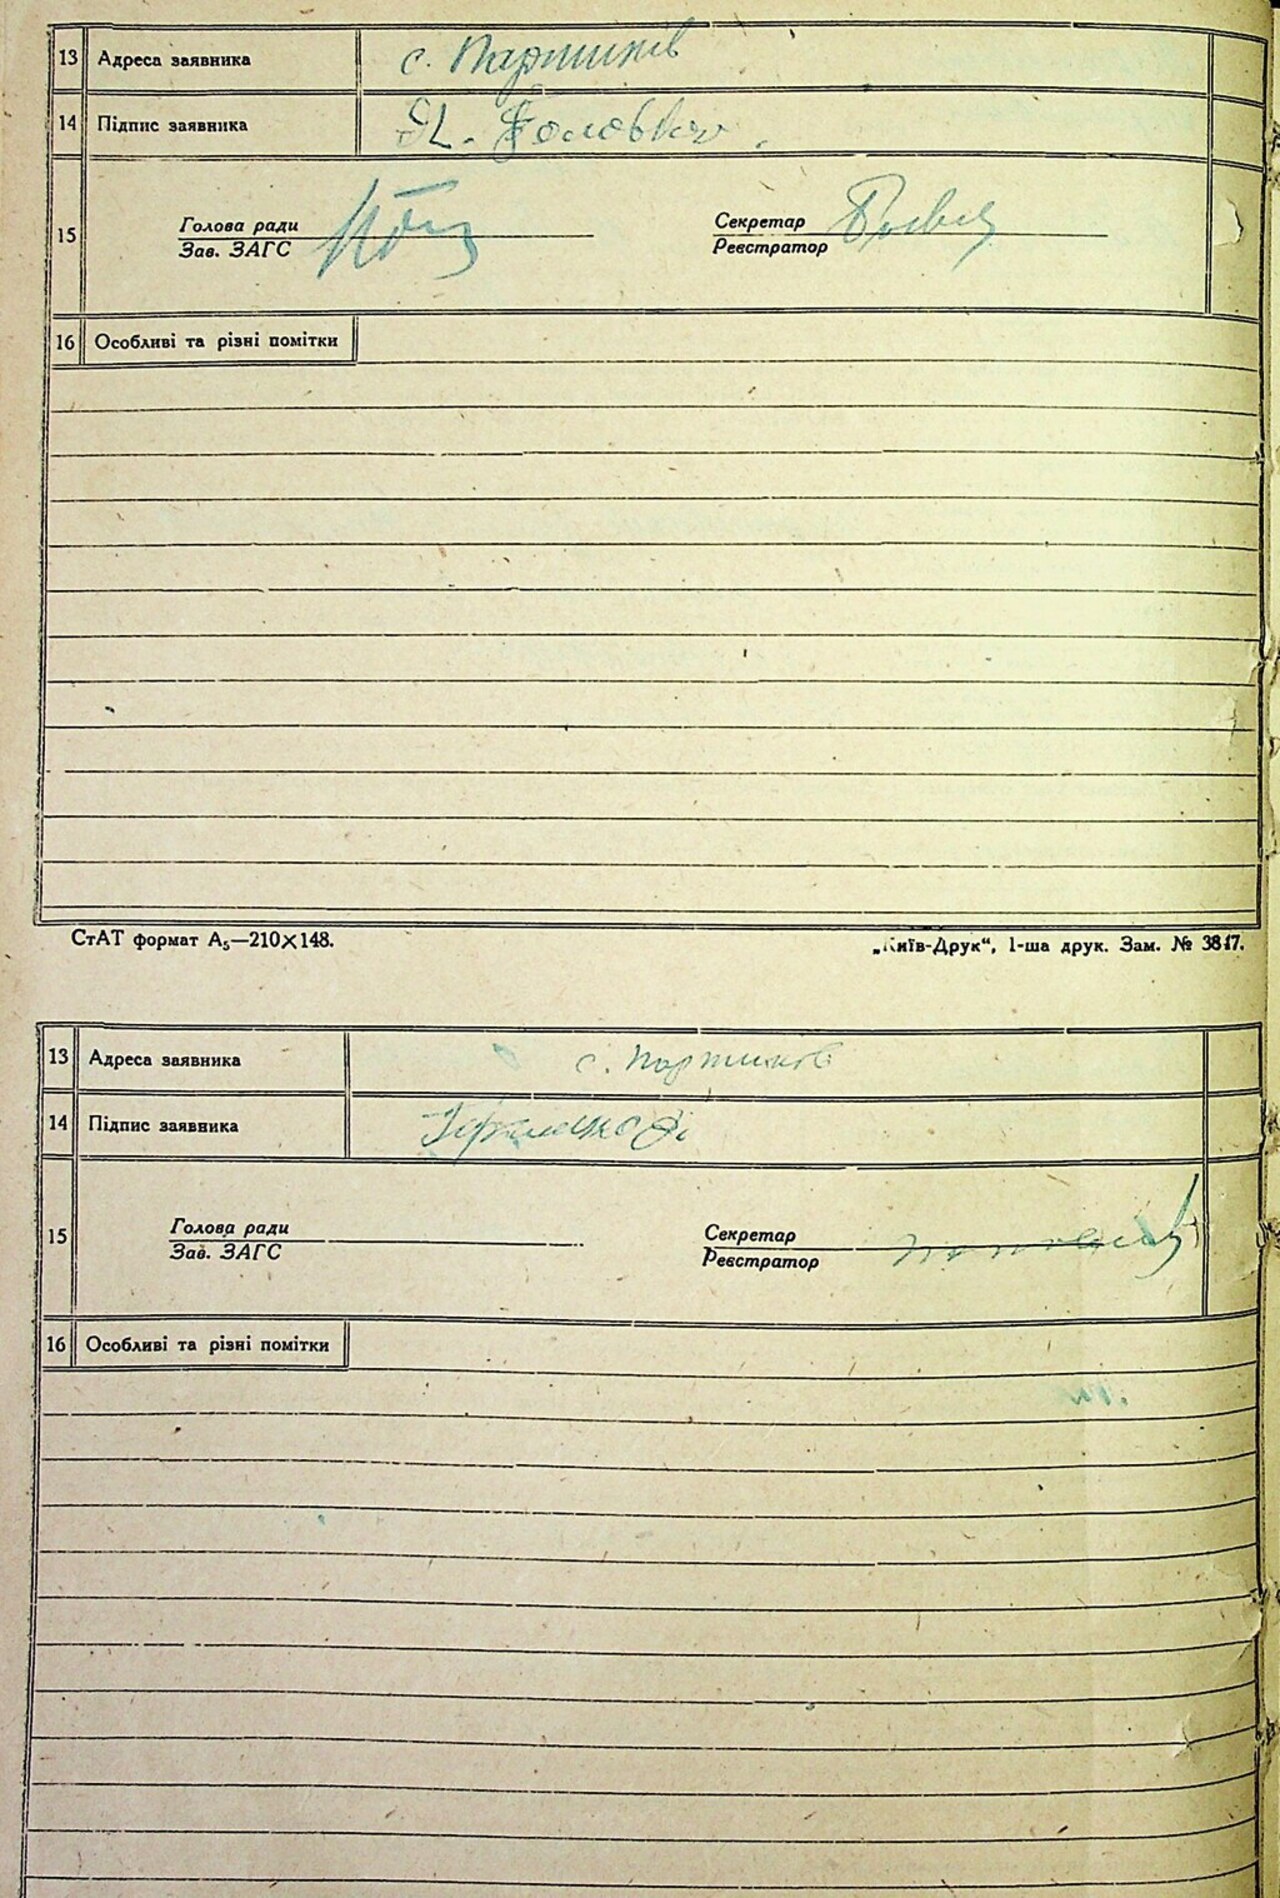 13 Адреса заявника с. Паришків
14 Підпис заявника Я. Головко.
15 Голова ради Секретар
Зав. ЗАГС Реєстратор
16 Особливі та різні помітки
СтАТ формат А₅—210×148. „Київ-Друк“, 1-ша друк. Зам. № 3817.
13 Адреса заявника с. Паришков
14 Підпис заявника
15 Голова ради Секретар
Зав. ЗАГС Реєстратор
16 Особливі та різні помітки